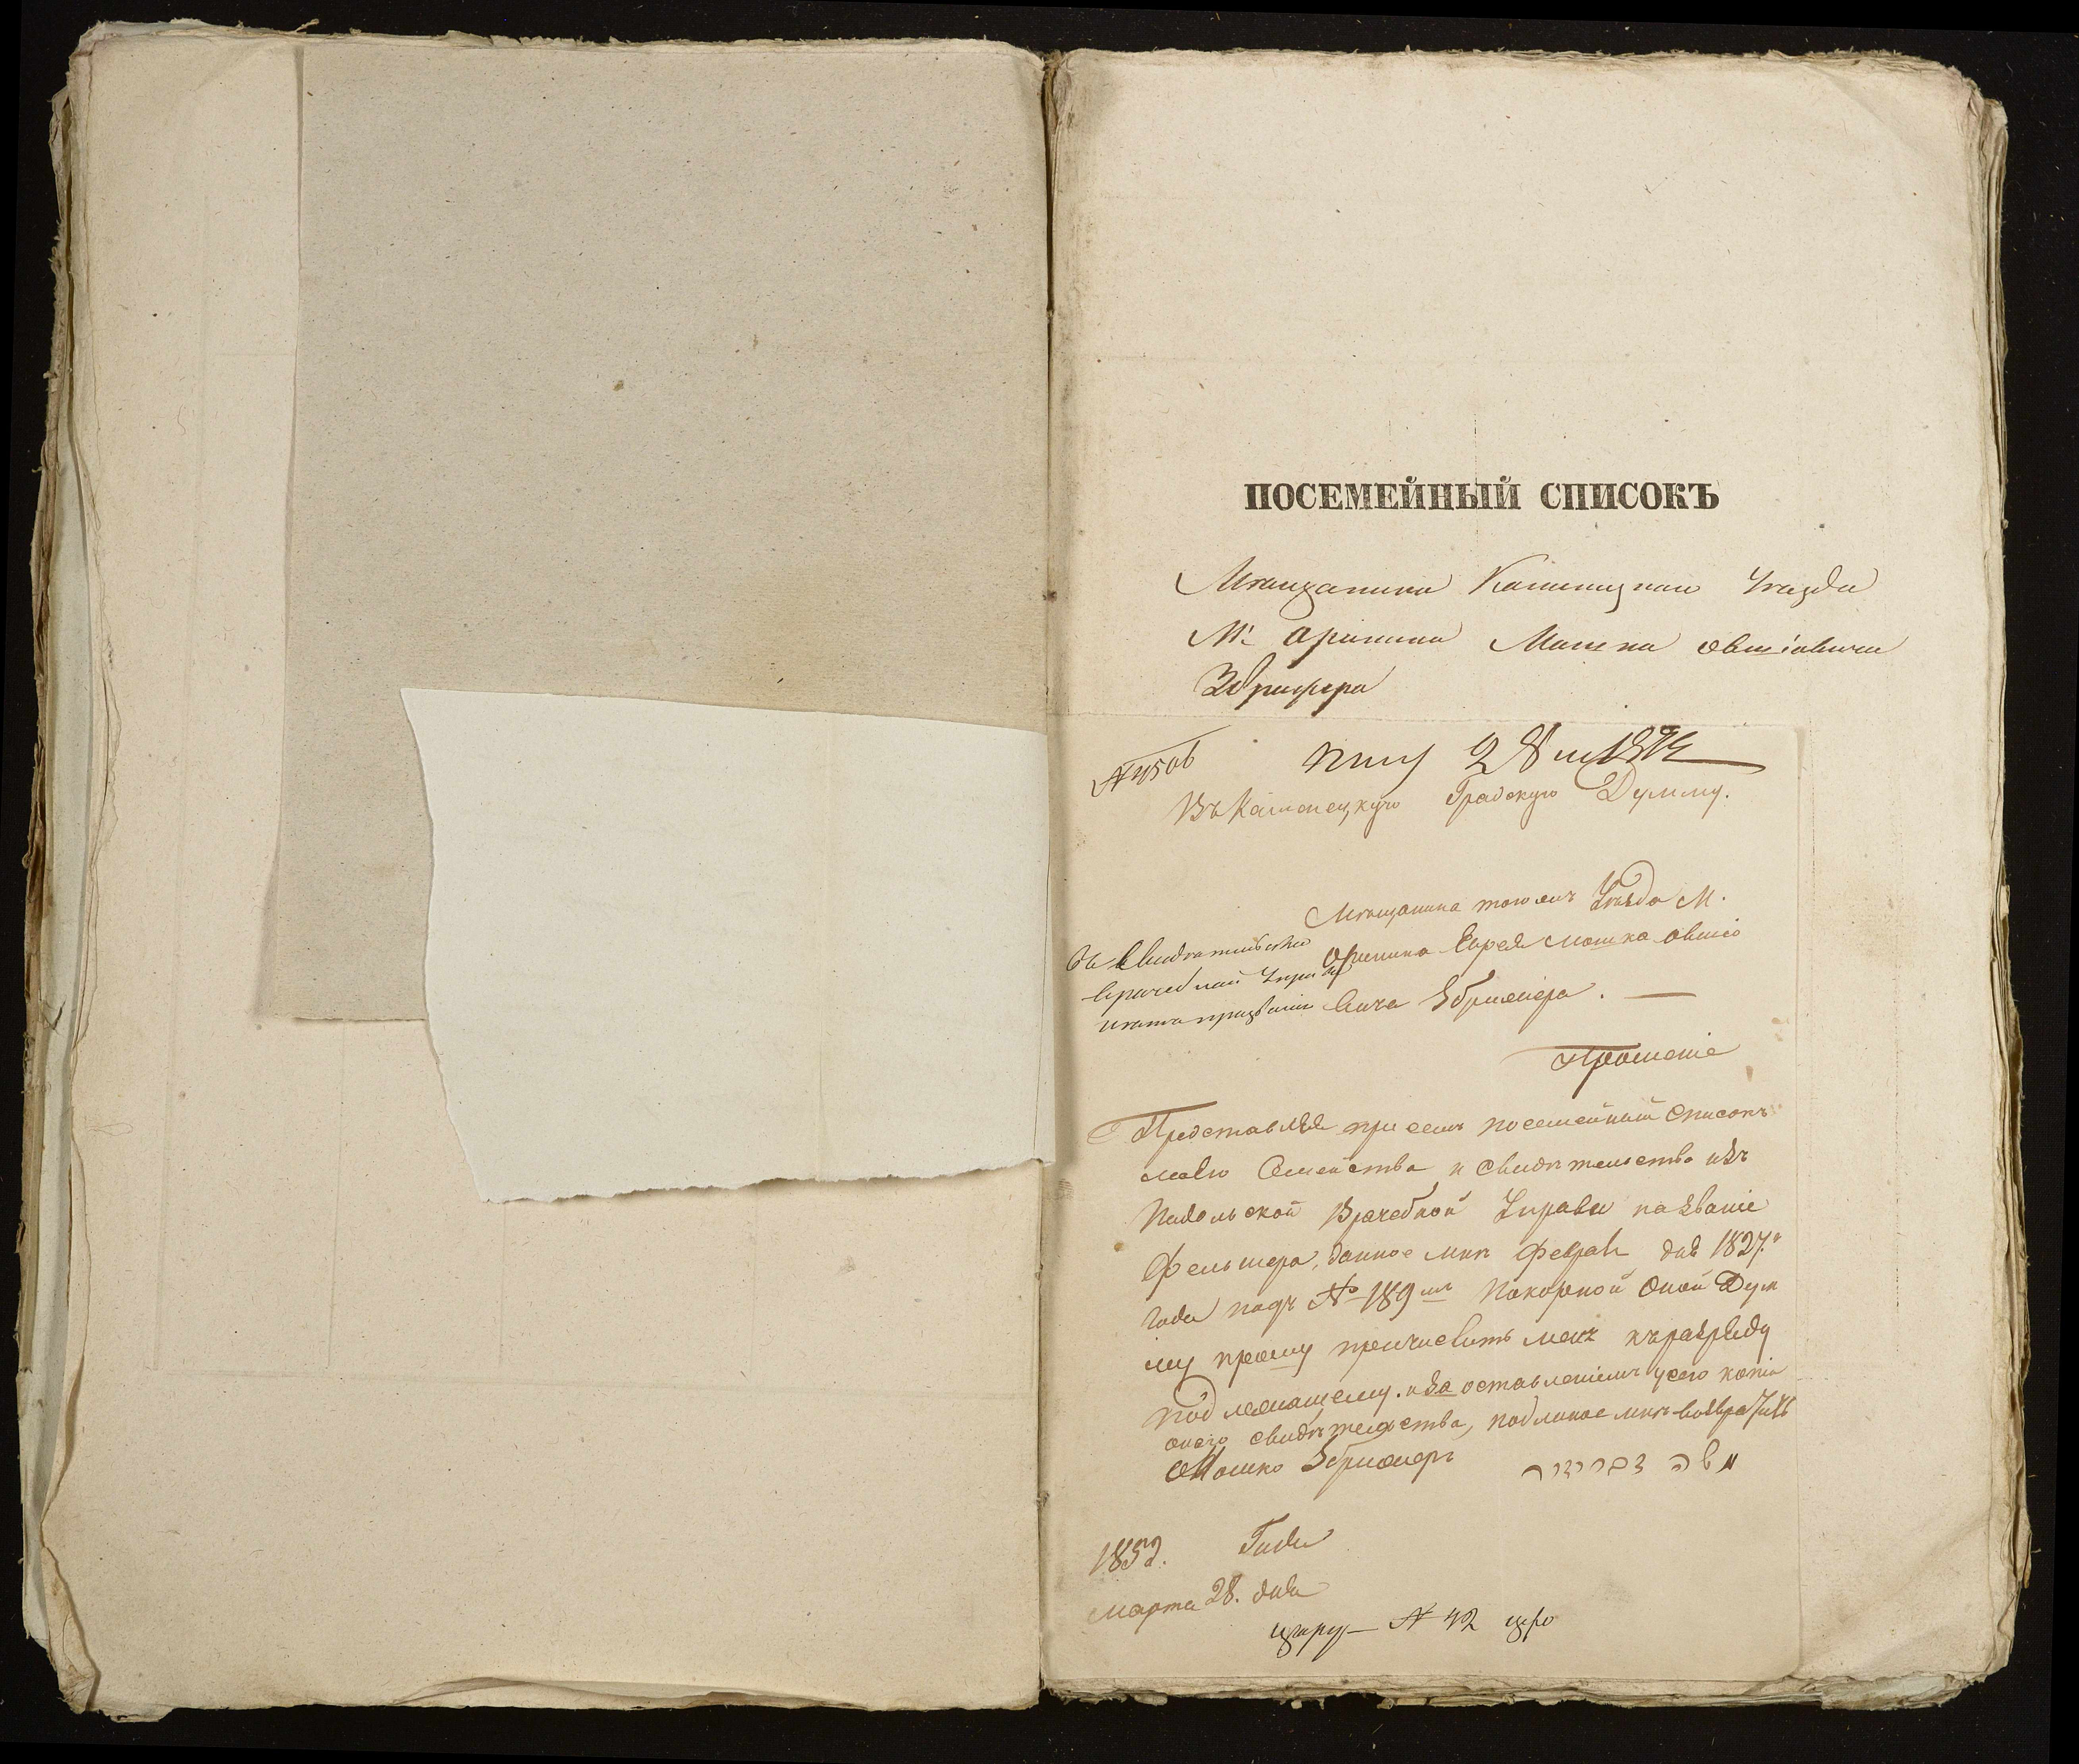 ПОСЕМЕЙНЫЙ СПИСОКЪ
Мѣщанина Каменецкаго Уѣзда
М. Оринина Мошка Овшіовича
Збрижера
№ 1506
28 м 1852
Въ Каменецкую Градскую Думму.
Мѣщанина того жъ Уѣзда М.
Оринина Еврея Мошка Овшіо
вича Збрижера. —
Свидѣтельство
врачебной Управы
Прошеніе
Представляя при семъ посемейный списокъ
моего Семейства и свидѣтельство изъ
Подольской Врачебной Управы на званіе
Фельшера, данное мнѣ Февраля дня 1827.
года подъ № 189 мъ Покорной оной Дум
му прошу причислить меня къ разряду
подлежащему. и за оставленіемъ у сего копіи
онаго свидѣтельства, подлиное мнѣ возвратить
Мошко Збрижеръ משה זבריזר
1852. Года
Марта 28. дня
№ 42